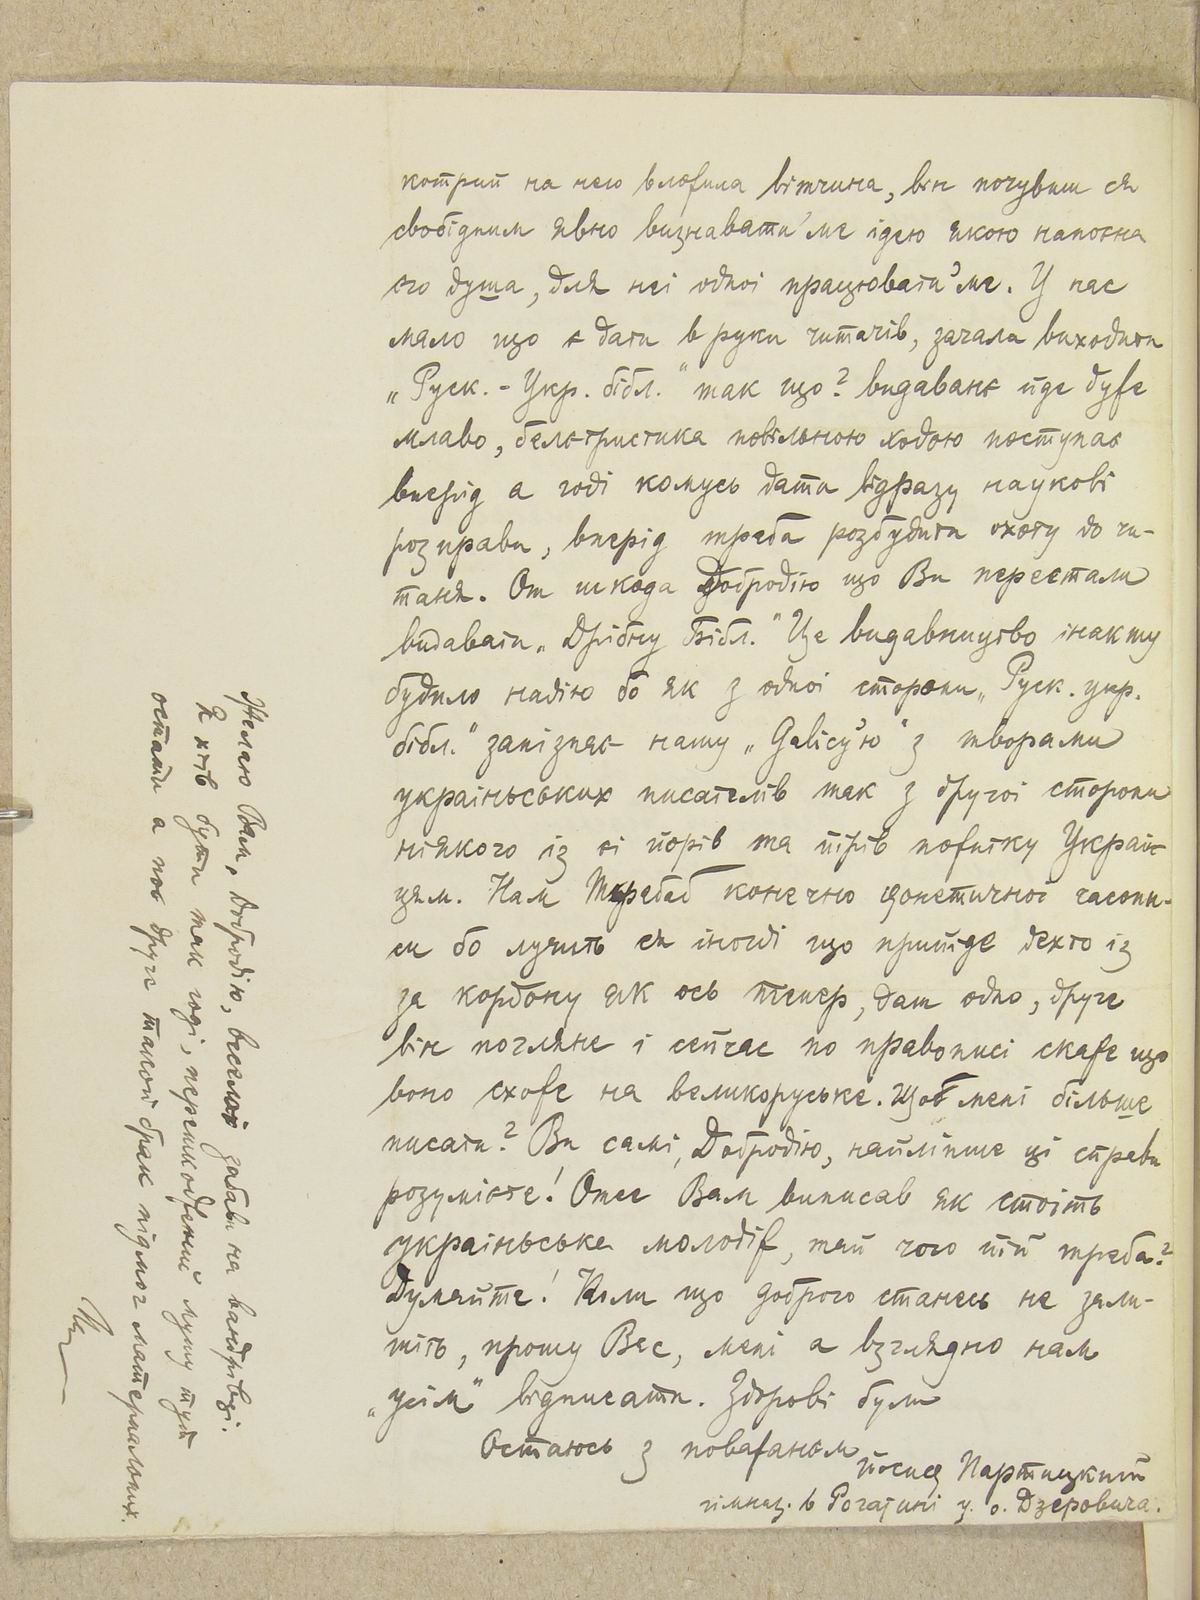 котрий на него вложила вітчина, він почувши ся
свобідним явно визнавати'ме ідею якою напоєна
єго душа, для неі одноі працювати'ме. У нас
мало що є дати в руки читачів, зачала виходити
„Руск. - Укр. бібл." так що? видаванє йде дуже
мляво, белєтристика повільною ходою поступає
вперід а годі комусь дати відразу наукові
розправи, вперід треба розбудити охоту до чи-
таня. От шкода Добродію що Ви перестали
видавати „Дрібну Бібл." Це видавництво інакшу
будило надію бо як з одноі сторони „Руск. укр.
бібл." запізнає нашу „Galicy'ю" з творами
украіньських писателів так з другоі сторони
ніякого із єі йорів та йірів пожитку Украін-
цям. Нам требаб конечно фонетичноі часопи-
си бо лучить ся іноді що прийде дехто із
за кордону як ось тепер, даш одно, друге
він погляне і сейчас по правописі скаже що
воно схоже на великоруське. Щоб мені більше
писати? Ви самі, Добродію, найліпше ці справи
розумієте! Отсе Вам виписав як стоіть
украіньська молодіж, тай чого ій треба?
Думайте! Коли що доброго станесь не зали-
шіть, прошу Вас, мені а взглядно нам
„усім" відписати. Здорові були
Остаюсь з поважанєм
Йосиф Партицкий
гімназ. в Рогатині у. о. Дзеровича.
Желаю Вам, Добродію, веселоі забави на вандрівці.
Я хтів бути так годі, перешкоджений мушу туй
остати а поє друге такой брак підмог матеріальних.